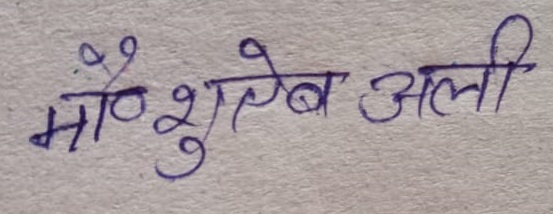 मौ० शुऐब अली